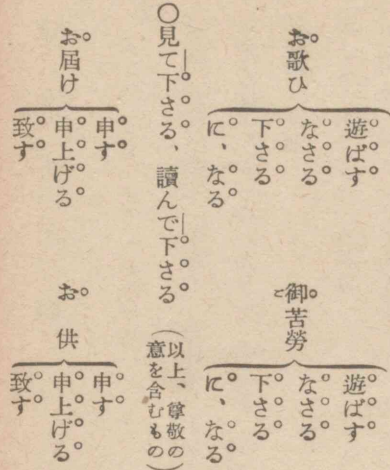 お歌ひ
遊ばす
なさる
下さる
に、なる
御苦勞
ご
遊ばす
なさる
下さる
に、なる
〇見て下さる、讀んで下さる
(以上、尊敬の
意を含むもの)
お屆け
申す
申上げる
致す
お供
申す
申上げる
致す